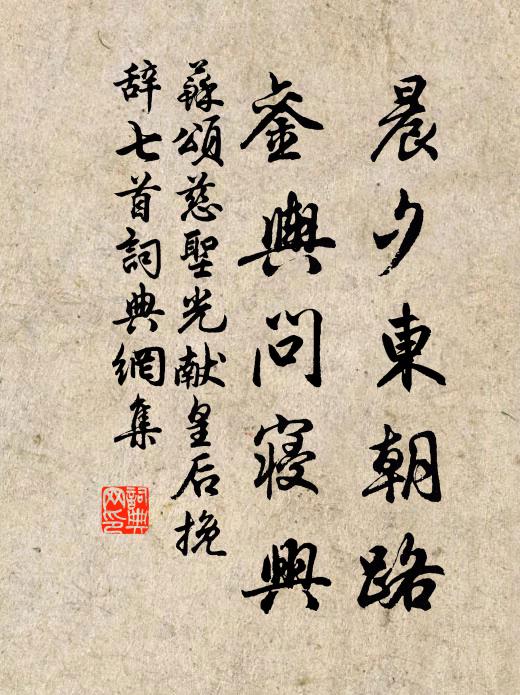 晨夕東朝路
金輿問寢興
蘇頌慈聖光献皇后挽
辞七首詞典網集
詞典网印